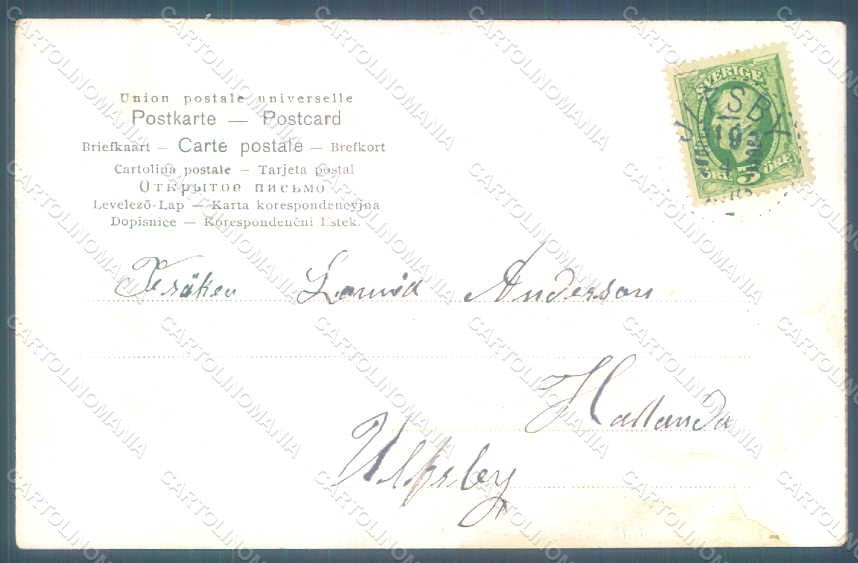 Union postale universelle
Postkarte — Postcard
Briefkaart — Carte postale — Brefkort
Cartolina postale — Tarjeta postal
Открытое письмо
Levelező-Lap — Karta korespondencyjna
Dopisnice — Korespondenční lístek.
SVERIGE
5 ÖRE
Fröken Lovisa Anderson
Hallanda
Ulfsby
CARTOLINOMANIA